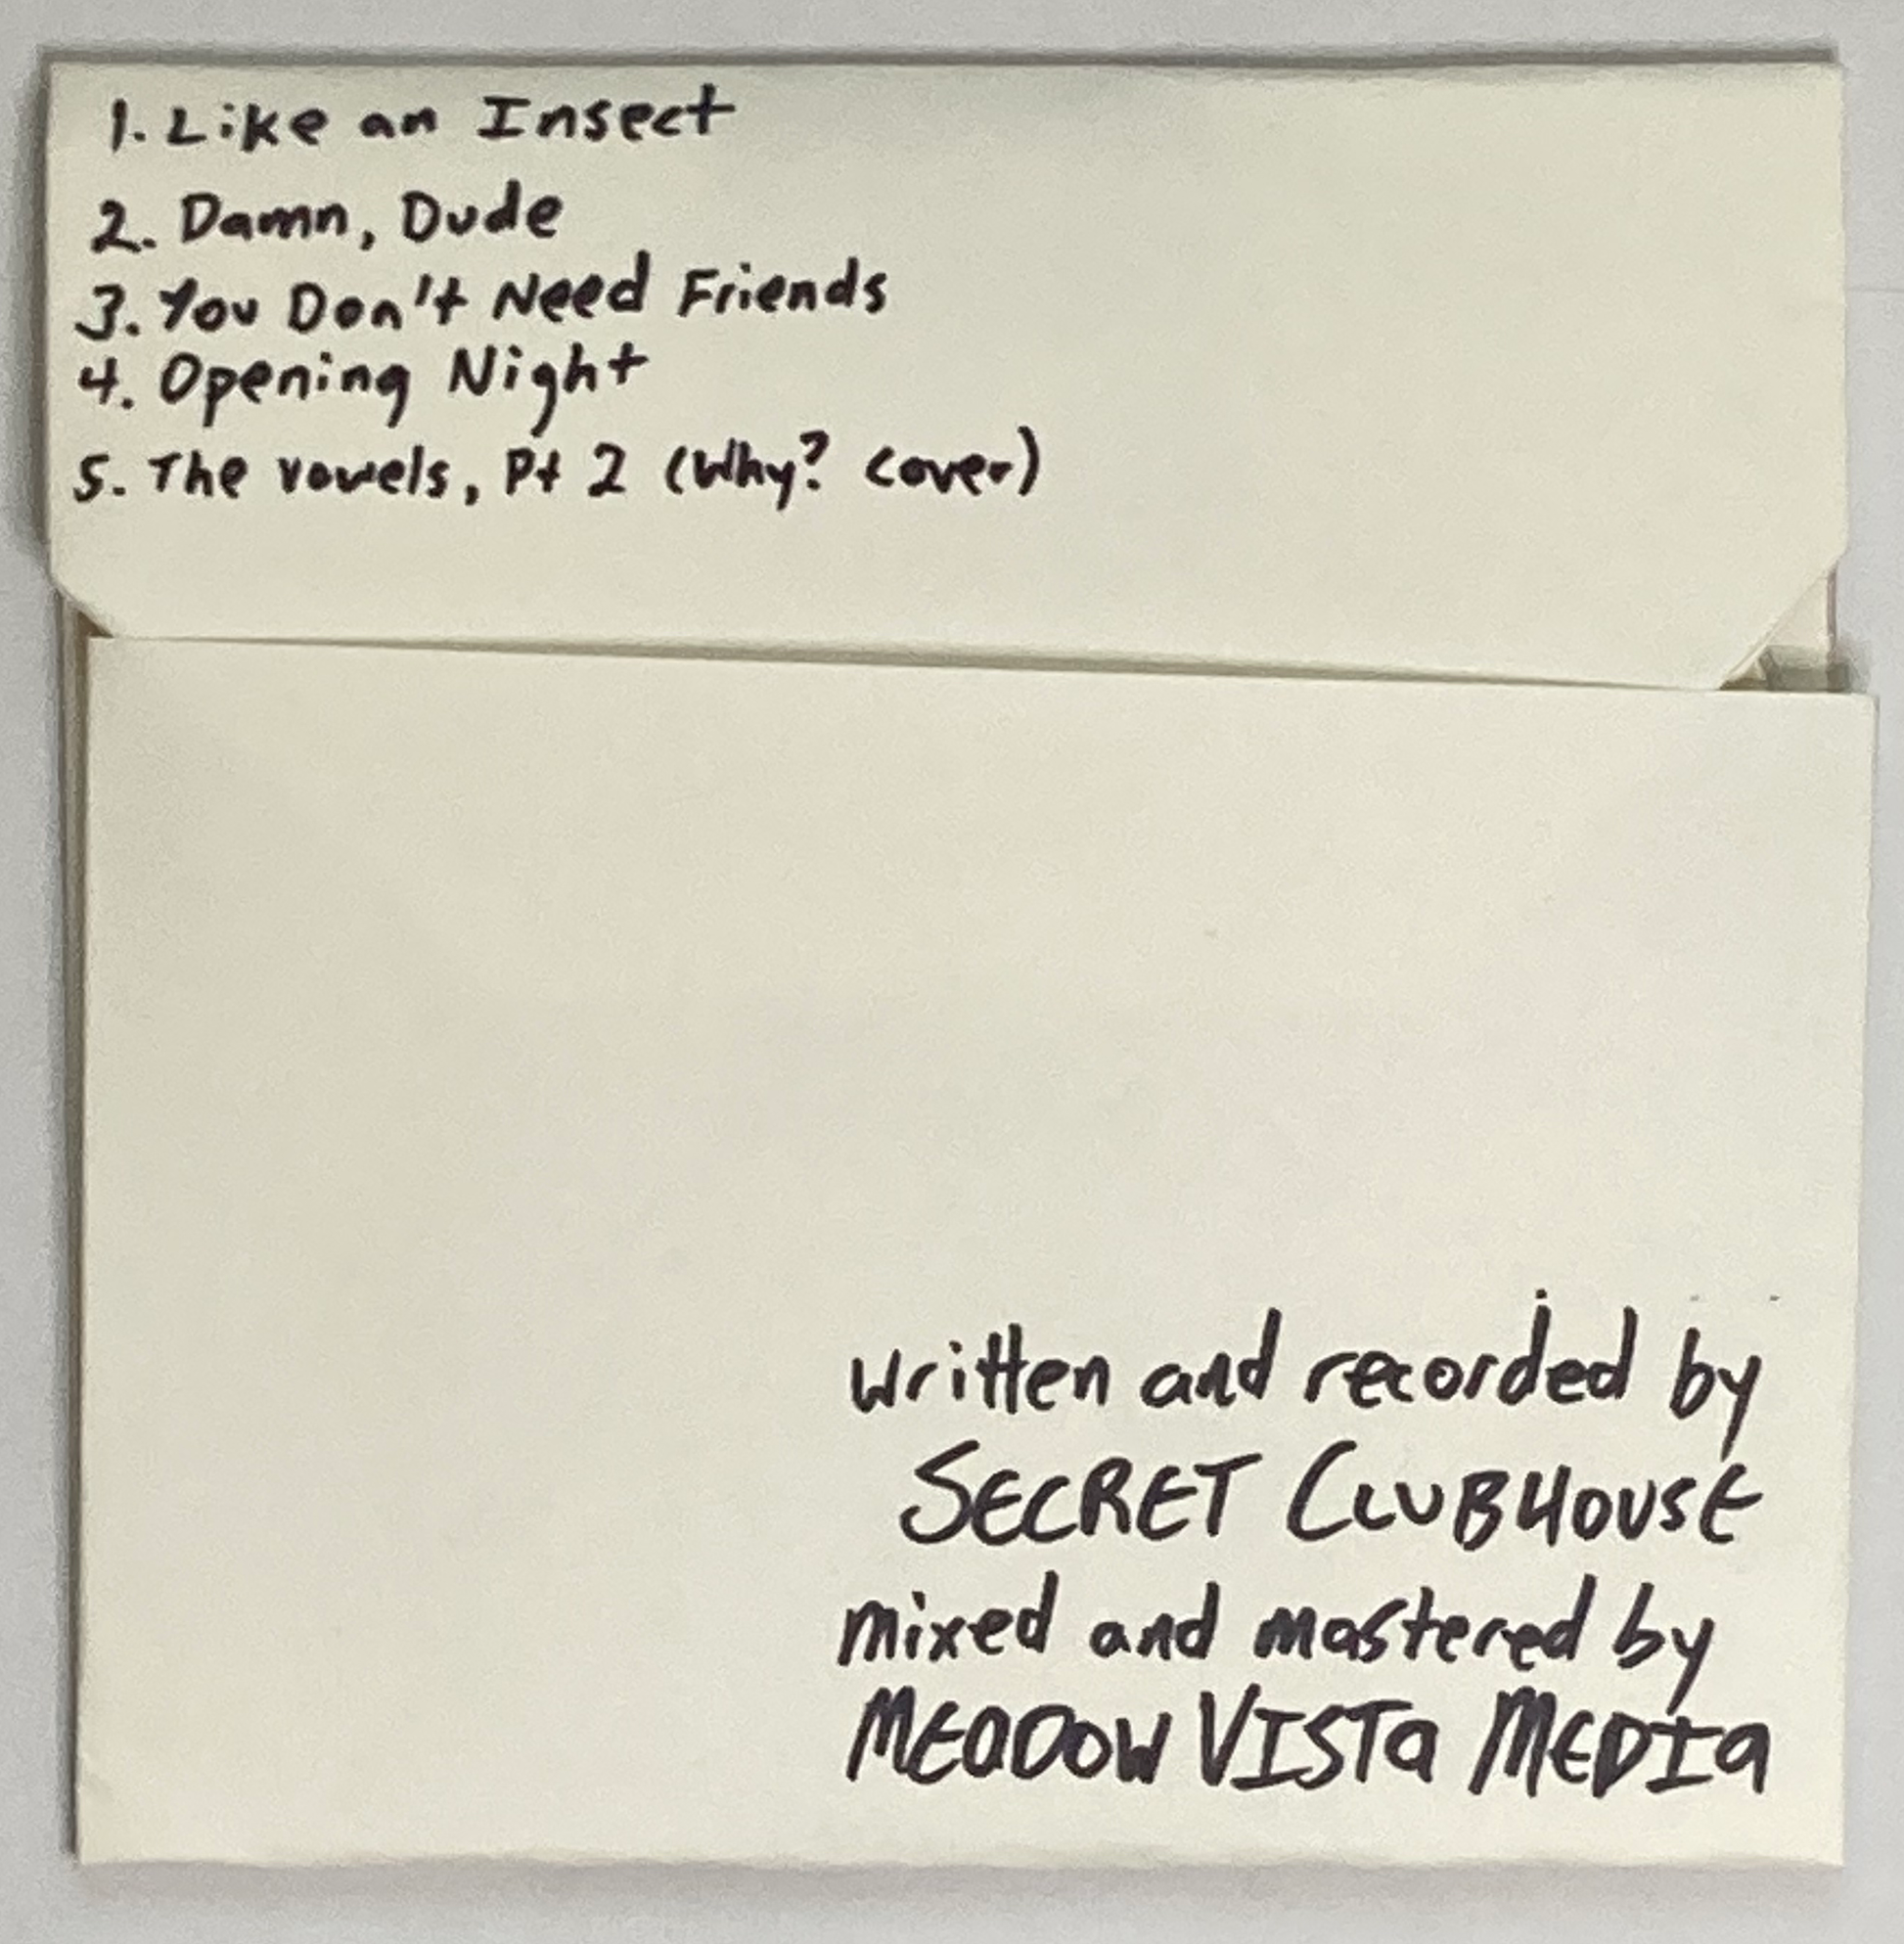 1. Like an Insect
2. Damn, Dude
3. You Don't Need Friends
4. Opening Night
5. The vowels, Pt 2 (Why? cover)
written and recorded by
SECRET CLUBHOUSE
mixed and mastered by
MEADOW VISTA MEDIA